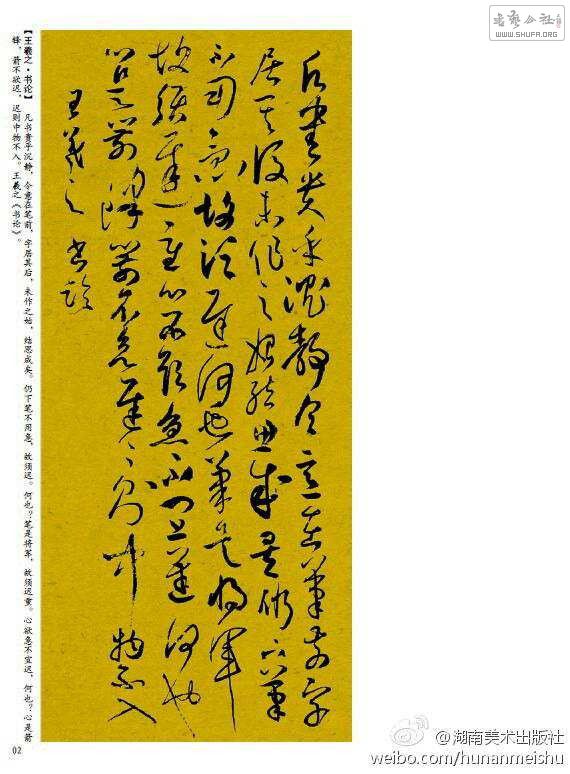 书艺公社
WWW.SHUFA.ORG
凡書貴乎沉靜令意在筆前字
居其後未作之始結思成矣仍下筆
不用急故須遲何也筆是將軍
故須遲重心欲急不宜遲何也
心是箭鋒箭不欲遲遲則中物不入
王羲之書論
【王羲之·书论】凡书贵乎沉静,令意在笔前,字居其后,未作之始,结思成矣。仍下笔不用急,故须迟。何也?笔是将军,故须迟重。心欲急不宜迟,何也?心是箭
锋,箭不欲迟,迟则中物不入。王羲之《书论》。
02
@湖南美术出版社
weibo.com/hunanmeishu